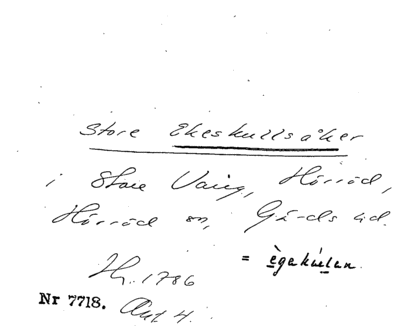 Store Ekeskullsåker
i Store Vång, Hörröd,
Hörröd sn, Gärds hd.
Hr. 1786 = ègakúlan.
Nr 7718. Akt 4.